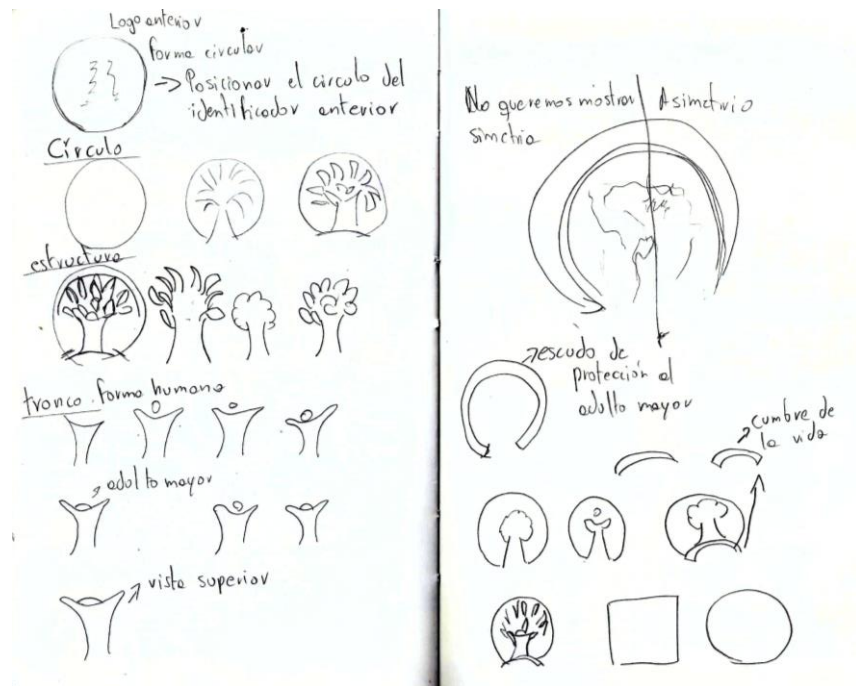 Logo anterior
forma circular
-> Posicionar el circulo del
identificador anterior
Círculo
estructura
tronco. forma humana
adulto mayor
vista superior
No queremos mostrar
simetria
Asimetria
escudo de
protección al
adulto mayor
cumbre de
la vida